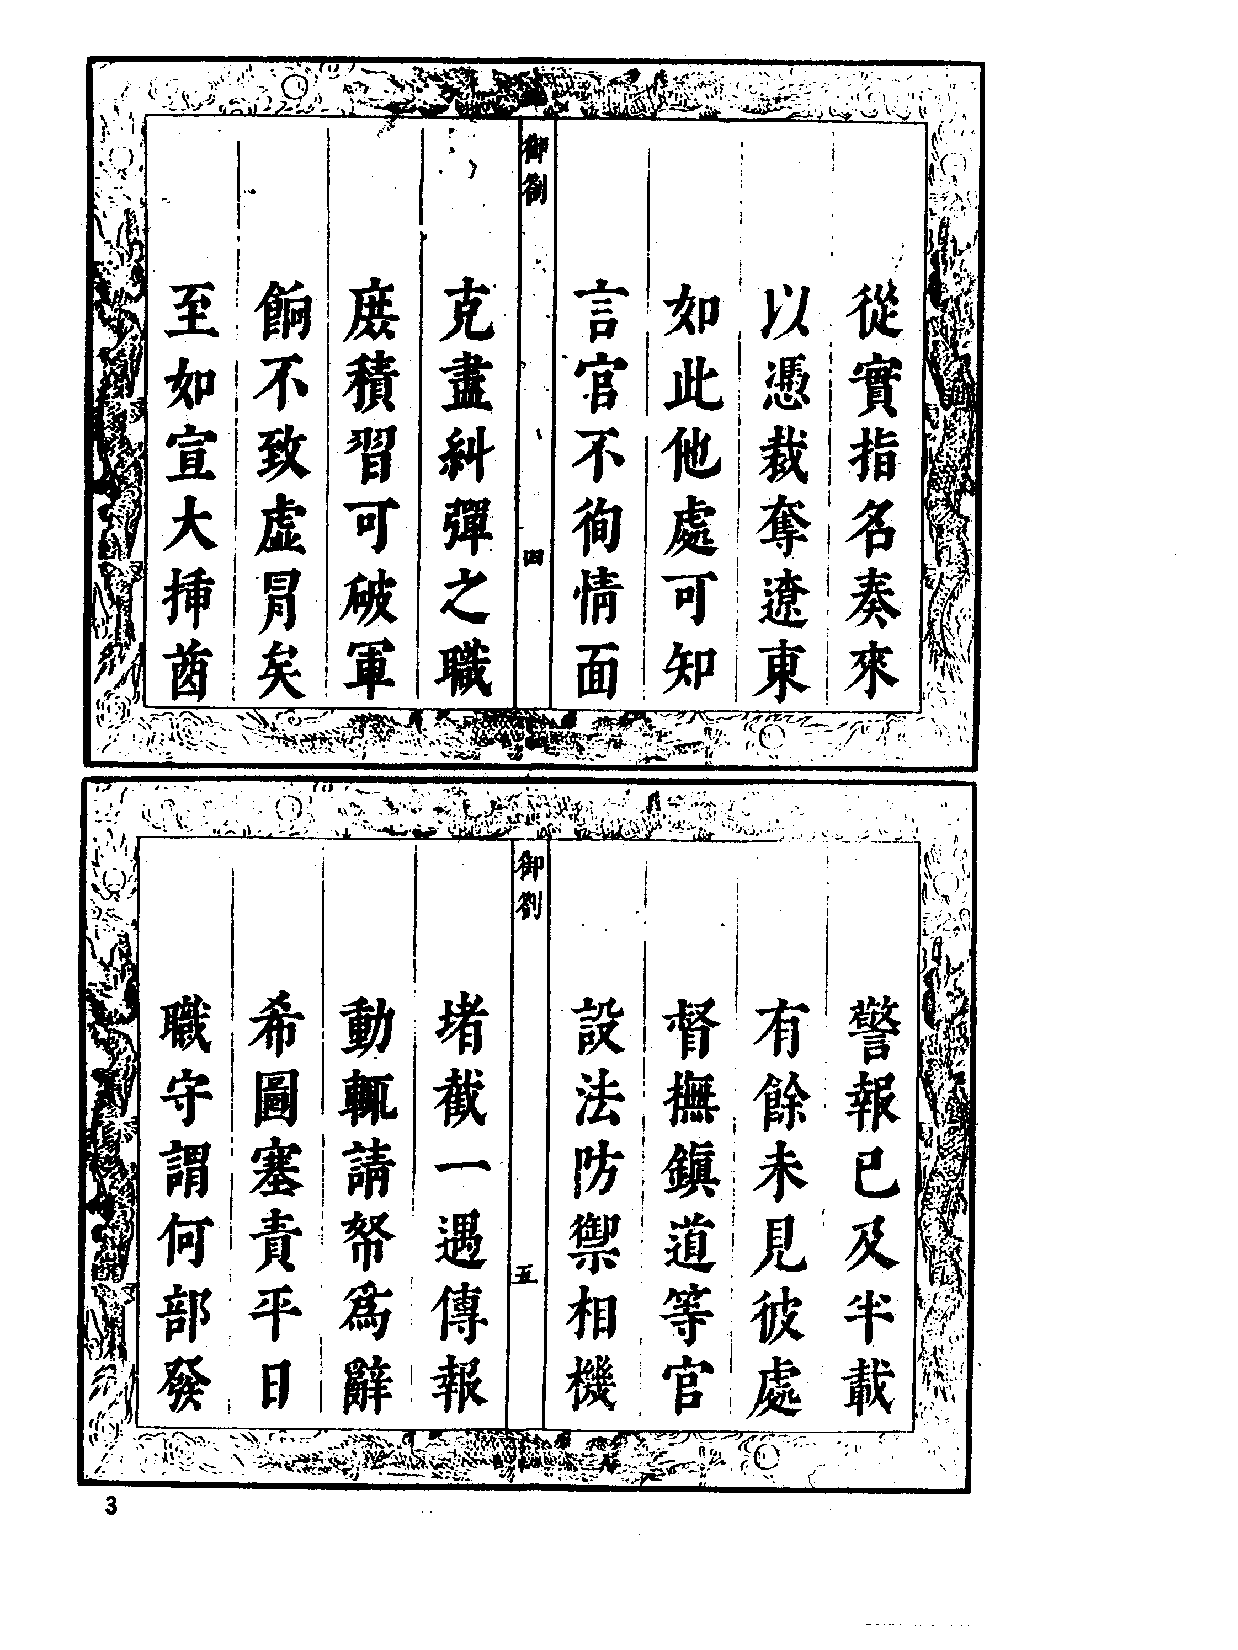 從實指名奏來
以憑裁奪遼東
如此他處可知
言官不徇情面
御劄
四
克盡糾彈之職
庶積習可破軍
餉不致虛冒矣
至如宣大揷酋
警報已及半載
有餘未見彼處
督撫鎮道等官
設法防禦相機
御劄
五
堵截一遇傳報
動輒請帑為辭
希圖塞責平日
職守謂何部發
3